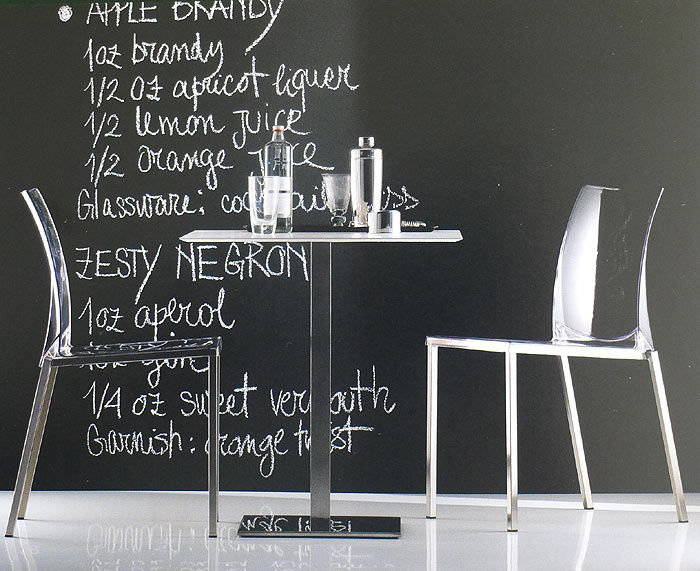 APPLE BRANDY
1oz brandy
1/2 oz apricot liquer
1/2 lemon juice
1/2 orange juice
Glassware: cocktail glass
ZESTY NEGRON
1oz aperol
1oz gin
1/4 oz sweet vermouth
Garnish: orange twist